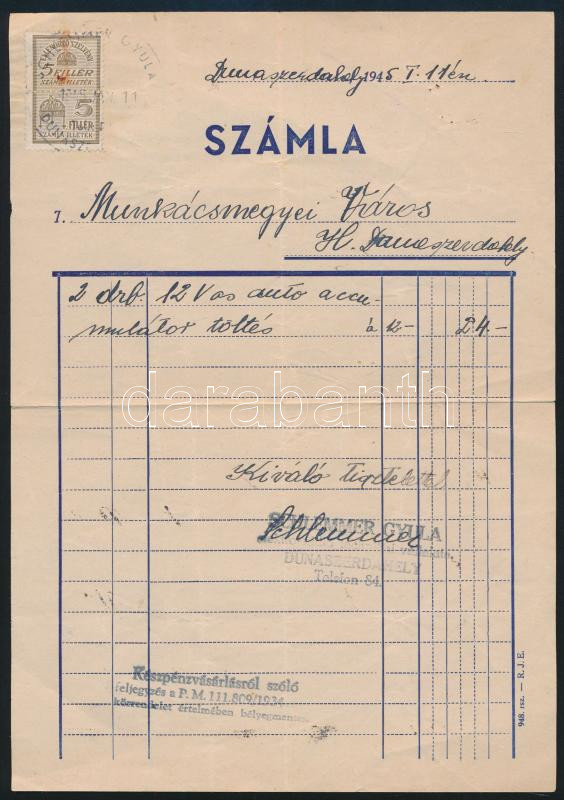 SCHLEMMER GYULA
ELLENŐRZŐ SZELVÉNY
5 FILLÉR
SZÁMLAILLETÉK
5
FILLÉR
SZÁMLAILLETÉK
Dunaszerdahely 1945 I. 11én
SZÁMLA
T. Munkácsmegyei Város
H. Dunaszerdahely
2 drb. 12 Vos auto accu-
mulátor töltés à 12- 24-
darabanth
Kiváló tisztelettel
SCHLEMMER GYULA
Schlemmer
DUNASZERDAHELY
Telefon 84.
Készpénzvásárlásról szóló
feljegyzés a P. M. 111.809/1934
körrendelet értelmében bélyegmentes.
948. rsz. — R. J. E.